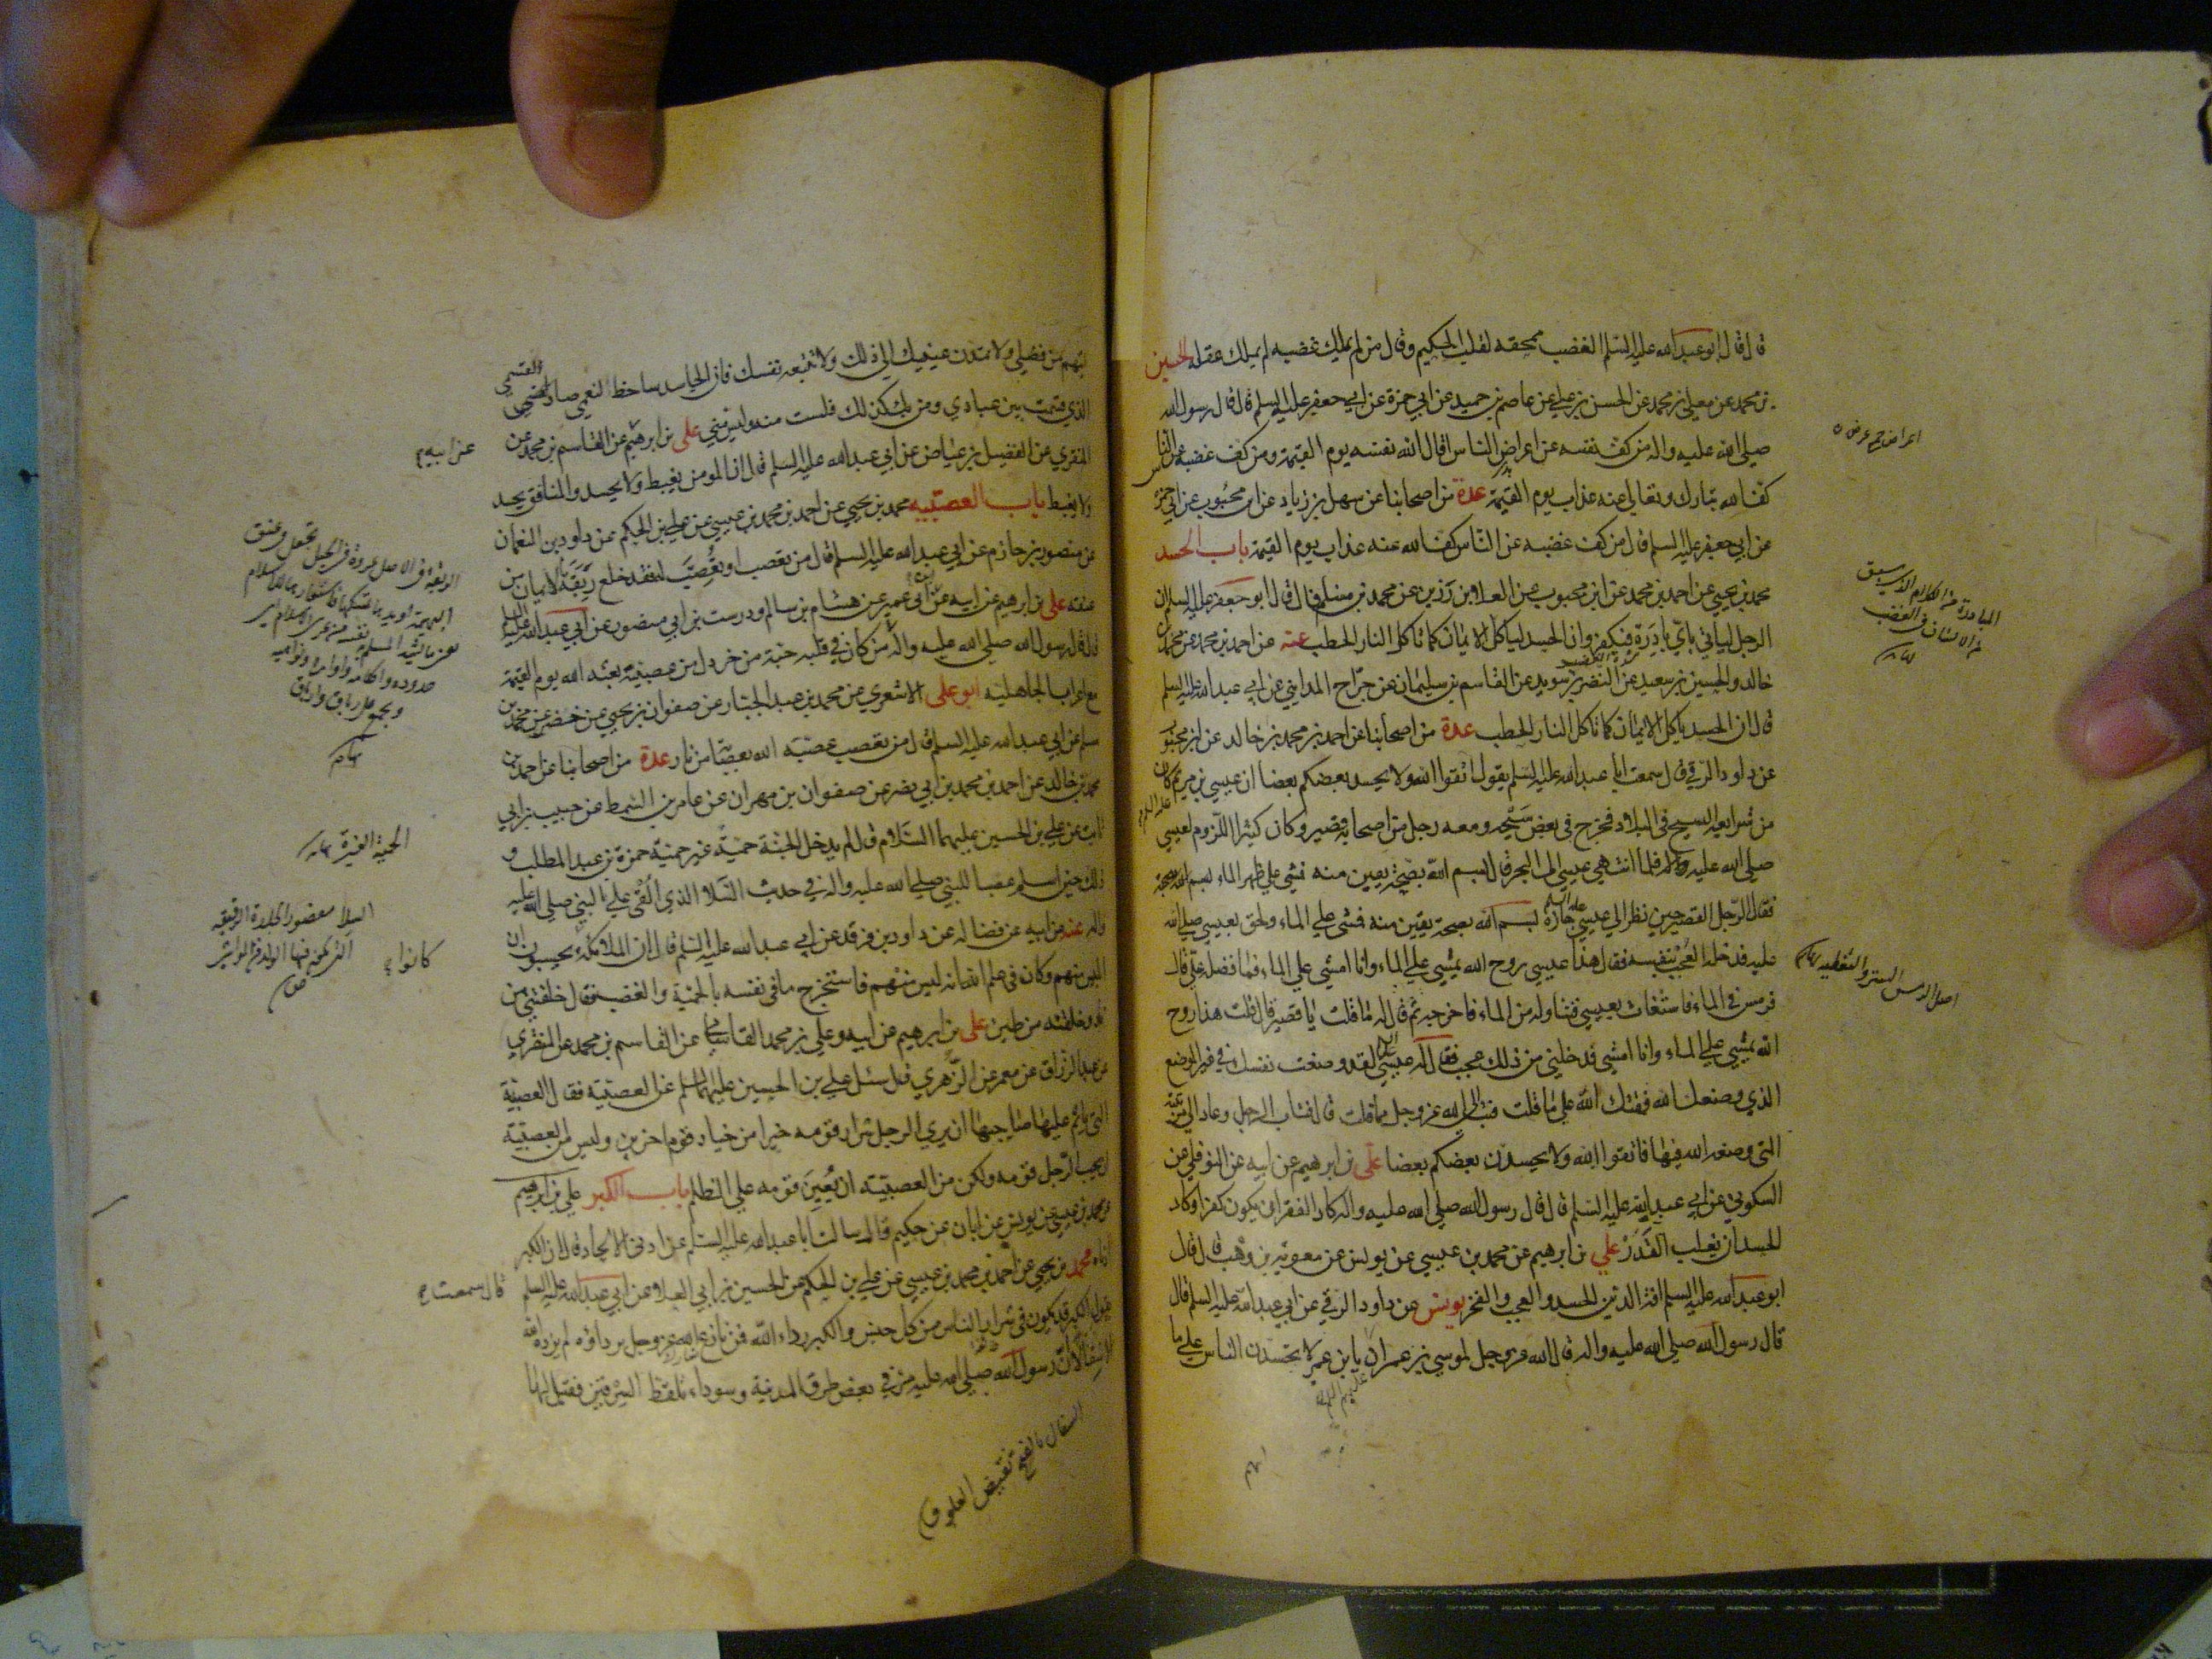 قال قال ابو عبد الله عليه السلم الغضب ممحقه لقلب الحكيم وقال من لم يملك غضبه لم يملك عقله الحسين
بن محمد عن معلى بن محمد عن الحسن بن علي عن عاصم بن حميد عن ابي حمزة عن ابي جعفر عليه السلم قال قال رسول الله
صلى الله عليه واله من كف نفسه عن اعراض الناس اقال الله نفسه يوم القيمة ومن كف غضبه عن الناس
كف الله تبارك وتعالى عنه عذاب يوم القيمة عدة من اصحابنا عن سهل بن زياد عن ابن محبوب عن ابي حمزة
عن ابي جعفر عليه السلم قال من كف غضبه عن الناس كف الله عنه عذاب يوم القيمة باب الحسد
محمد بن يحيى عن احمد بن محمد عن ابن محبوب عن العلاء بن رزين عن محمد بن مسلم قال قال ابو جعفر عليه السلم ان
الرجل لياتي باي بادرة فيكفر وان الحسد لياكل الايمان كما تاكل النار الحطب عنه عن احمد بن محمد عن محمد بن
خالد والحسين بن سعيد عن النضر بن سويد عن القاسم بن سليمان عن جراح المدايني عن ابي عبد الله عليه السلم
قال ان الحسد ياكل الايمان كما تاكل النار الحطب عدة من اصحابنا عن احمد بن محمد بن خالد عن ابن محبوب
عن داود الرقي قال سمعت ابا عبد الله عليه السلم يقول اتقوا الله ولا يحسد بعضكم بعضا ان عيسى بن مريم كان
من شرايعه السيح في البلاد فخرج في بعض سيحه ومعه رجل من اصحابه قصير وكان كثير اللزوم لعيسى
صلى الله عليه فلما انتهى عيسى الى البحر قال بسم الله بصحة يقين منه فمشى على ظهر الماء
فقال الرجل القصير حين نظر الى عيسى جازه بسم الله بصحة يقين منه فمشى على الماء ولحق بعيسى صلى الله
عليه فدخله العجب بنفسه فقال هذا عيسى روح الله يمشي على الماء وانا امشي على الماء فما فضله علي قال
فرمس في الماء فاستغاث بعيسى فتناوله من الماء فاخرجه ثم قال له ما قلت يا قصير قال قلت هذا روح
الله يمشي على الماء وانا امشي فدخلني من ذلك عجب فقال له عيسى لقد وضعت نفسك في غير الموضع
الذي وضعك الله فمقتك الله على ما قلت فتب الى الله عز وجل مما قلت قال فتاب الرجل وعاد الى مرتبته
التي وضعه الله فيها فاتقوا الله ولا يحسدن بعضكم بعضا علي بن ابرهيم عن ابيه عن النوفلي عن
السكوني عن ابي عبد الله عليه السلم قال قال رسول الله صلى الله عليه واله كاد الفقر ان يكون كفرا وكاد
الحسد ان يغلب القدر علي بن ابرهيم عن محمد بن عيسى عن يونس عن معوية بن وهب قال قال
ابو عبد الله عليه السلم افة الدين الحسد والعجب والفخر يونس عن داود الرقي عن ابي عبد الله عليه السلم قال
قال رسول الله صلى الله عليه واله قال الله عز وجل لموسى بن عمران يا ابن عمران لا تحسدن الناس على ما
اعراض ج عرض
البادرة من الكلام الذي يسبق
من الانسان في الغضب
اصل الرمس الستر والتغطيه
اتيتهم من فضلي ولا تمدن عينيك الى ذلك ولا تتبعه نفسك فان الحاسد ساخط لنعمي صاد لقسمي
الذي قسمت بين عبادي ومن يك كذلك فلست منه وليس مني علي بن ابرهيم عن القاسم بن محمد عن
المنقري عن الفضيل بن عياض عن ابي عبد الله عليه السلم قال ان المومن يغبط ولا يحسد والمنافق يحسد
ولا يغبط باب العصبيه محمد بن يحيى عن احمد بن محمد بن عيسى عن علي بن الحكم عن داود بن النعمان
عن منصور بن حازم عن ابي عبد الله عليه السلم قال من تعصب او تعصب له فقد خلع ربقة الايمان من
عنقه علي بن ابرهيم عن ابيه عن ابن ابي عمير عن هشام بن سالم ودرست بن ابي منصور عن ابي عبد الله عليه السلم
قال قال رسول الله صلى الله عليه واله من كان في قلبه حبة من خردل من عصبية بعثه الله يوم القيمة
مع اعراب الجاهلية ابو علي الاشعري عن محمد بن عبد الجبار عن صفوان بن يحيى عن خضر عن محمد بن
مسلم عن ابي عبد الله عليه السلم قال من تعصب عصبه الله بعصابة من نار عدة من اصحابنا عن احمد بن
محمد بن خالد عن احمد بن محمد بن ابي نصر عن صفوان بن مهران عن عامر بن السمط عن حبيب بن ابي
ثابت عن علي بن الحسين عليهما السلام قال لم يدخل الجنة حمية غير حمية حمزة بن عبد المطلب و
ذلك حين اسلم غضبا للنبي صلى الله عليه واله في حديث السلا الذي القي على النبي صلى الله عليه
واله عنه عن ابيه عن فضاله عن داود بن فرقد عن ابي عبد الله عليه السلم قال ان الملائكة يحسبون ان
ابليس منهم وكان في علم الله انه ليس منهم فاستخرج ما في نفسه بالحمية والغضب فقال خلقتني من
نار وخلقته من طين علي بن ابرهيم عن ابيه وعلي بن محمد القاساني عن القاسم بن محمد عن المنقري
عن عبد الرزاق عن معمر عن الزهري قال سئل علي بن الحسين عليهما السلم عن العصبية فقال العصبية
التي ياثم عليها صاحبها ان يرى الرجل شرار قومه خيرا من خيار قوم اخرين وليس من العصبية
ان يحب الرجل قومه ولكن من العصبية ان يعين قومه على الظلم باب الكبر علي بن ابرهيم
عن محمد بن عيسى عن يونس عن ابان عن حكيم قال سالت ابا عبد الله عليه السلم عن ادنى الالحاد قال ان الكبر
ادناه محمد بن يحيى عن احمد بن محمد بن عيسى عن علي بن الحكم عن الحسين بن ابي العلاء عن ابي عبد الله عليه السلم قال سمعته
يقول الكبر قد يكون في شرار الناس من كل جنس والكبر رداء الله فمن نازع الله عز وجل رداؤه لم يزده الله
الا سفالا ان رسول الله صلى الله عليه مر في بعض طرق المدينة وسوداء تلقط السرقين فقيل لها
عن ابيه
الربقة في الاصل عروة في حبل تجعل في عنق
البهيمة او يدها تمسكها فاستعارها للاسلام
يعني ما يشد المسلم به نفسه من عرى الاسلام اي
حدوده واحكامه واوامره ونواهيه
ويجمع على رباق وارباق
الحمية الغيرة
السلا مقصور الجلدة الرقيقة
التي يكون فيها الولد من المواشي
كانوا
السفال بالفتح نقيض العلو